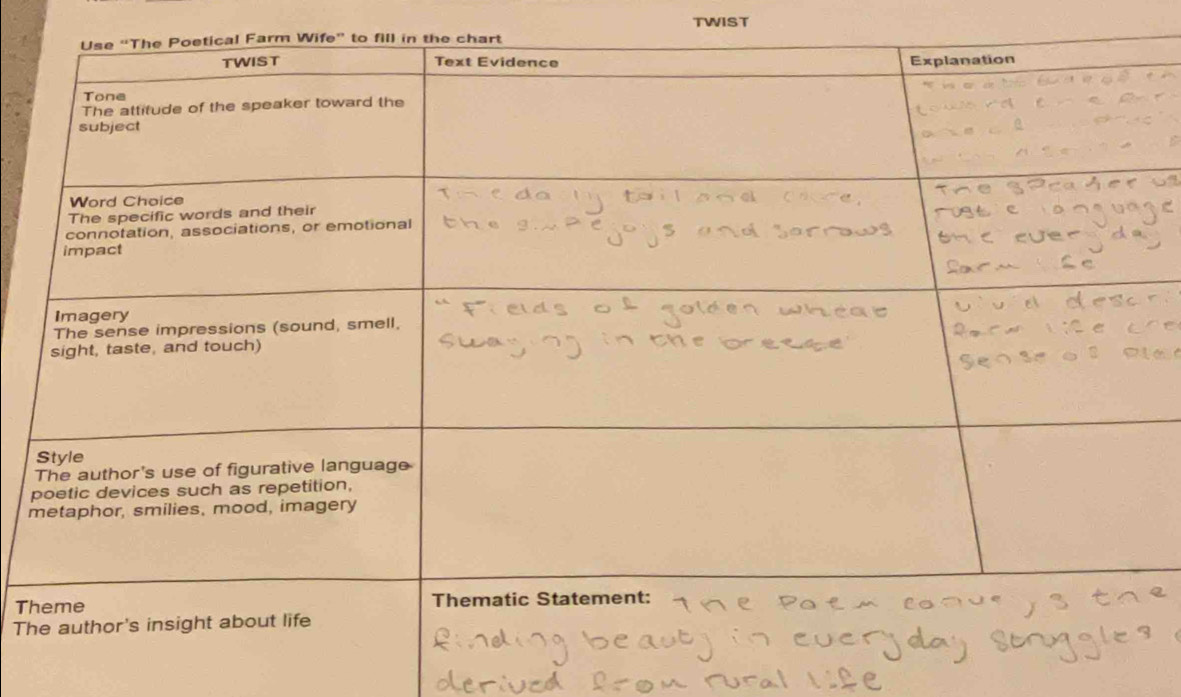 TWIST
Use "The Poetical Farm Wife" to fill in the chart
TWIST
Text Evidence
Explanation
Tone
The attitude of the speaker toward the
subject
toward
Word Choice
The specific words and their
connotation, associations, or emotional
impact
The daily toil and care,
the simple joys and sorrows
The speaker us
language
the everyday
farm life
Imagery
The sense impressions (sound, smell,
sight, taste, and touch)
"Fields of golden wheat
swaying in the breeze"
vivid descri
farm life cre
sense of
Style
The author's use of figurative language
poetic devices such as repetition,
metaphor, smilies, mood, imagery
Theme
The author's insight about life
Thematic Statement: The poem conveys the
finding beauty in everyday struggles
derived from rural life